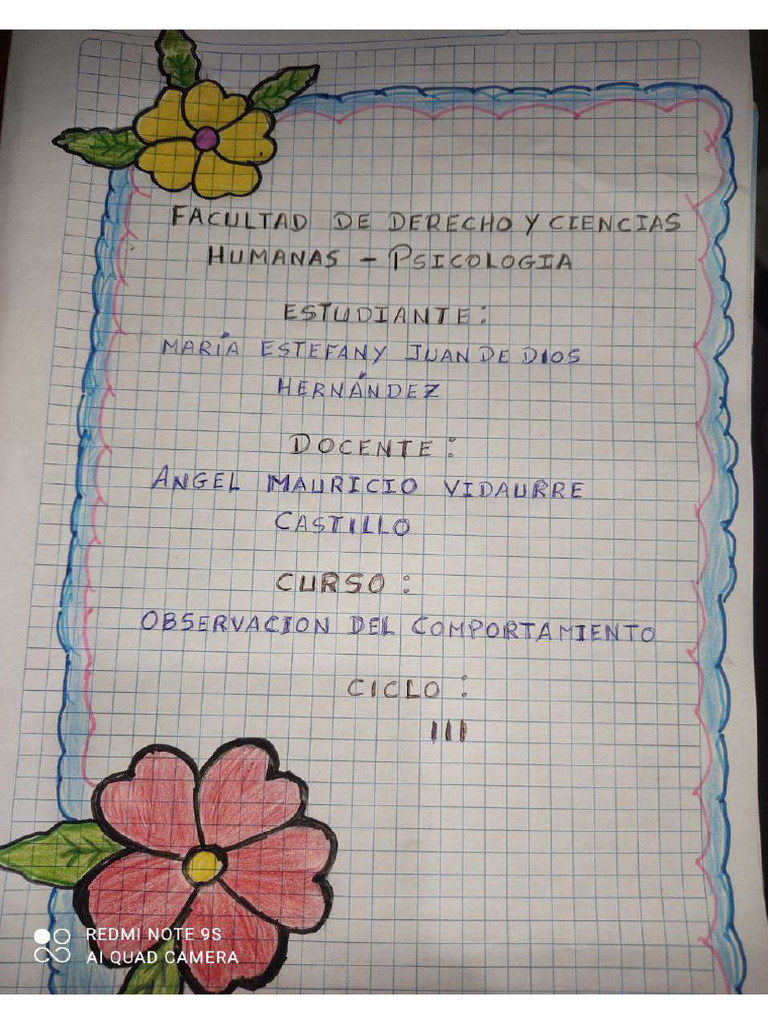 FACULTAD DE DERECHO Y CIENCIAS
HUMANAS - PSICOLOGIA
ESTUDIANTE:
MARÍA ESTEFANY JUAN DE DIOS
HERNÁNDEZ
DOCENTE:
ANGEL MAURICIO VIDAURRE
CASTILLO
CURSO:
OBSERVACION DEL COMPORTAMIENTO
CICLO:
III
REDMI NOTE 9S
AI QUAD CAMERA